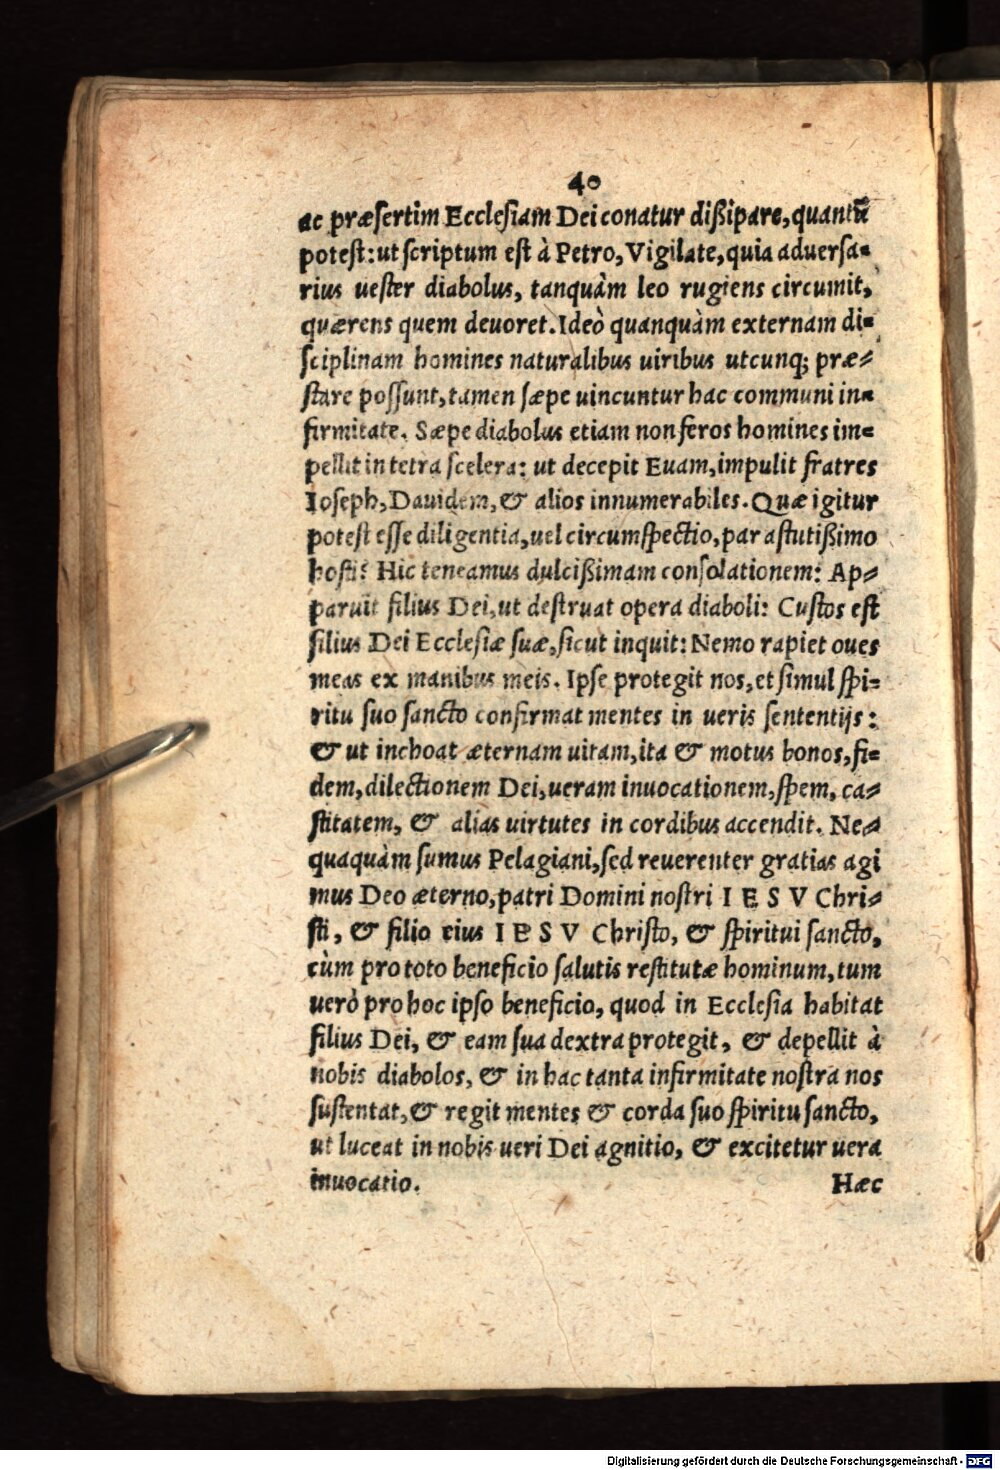 40
ac præsertim Ecclesiam Dei conatur dißipare, quantũ
potest: ut scriptum est à Petro, Vigilate, quia aduersa-
rius uester diabolus, tanquàm leo rugiens circumit,
quærens quem deuoret. Ideò quanquàm externam di-
sciplinam homines naturalibus uiribus utcunq; præ-
stare possunt, tamen sæpe uincuntur hac communi in-
firmitate. Sæpe diabolus etiam non feros homines im-
pellit in tetra scelera: ut decepit Euam, impulit fratres
Ioseph, Dauidem, & alios innumerabiles. Quæ igitur
potest esse diligentia, uel circumspectio, par astutißimo
hosti? Hic teneamus dulcißimam consolationem: Ap-
paruit filius Dei, ut destruat opera diaboli: Custos est
filius Dei Ecclesiæ suæ, sicut inquit: Nemo rapiet oues
meas ex manibus meis. Ipse protegit nos, et simul spi-
ritu suo sancto confirmat mentes in ueris sententijs:
& ut inchoat æternam uitam, ita & motus bonos, fi-
dem, dilectionem Dei, ueram inuocationem, spem, ca-
stitatem, & alias uirtutes in cordibus accendit. Ne-
quaquàm sumus Pelagiani, sed reuerenter gratias agi
mus Deo æterno, patri Domini nostri IESV Chri-
sti, & filio eius IESV Christo, & spiritui sancto,
cùm pro toto beneficio salutis restitutæ hominum, tum
uerò pro hoc ipso beneficio, quod in Ecclesia habitat
filius Dei, & eam sua dextra protegit, & depellit à
nobis diabolos, & in hac tanta infirmitate nostra nos
sustentat, & regit mentes & corda suo spiritu sancto,
ut luceat in nobis ueri Dei agnitio, & excitetur uera
inuocatio. Hæc
Digitalisierung gefördert durch die Deutsche Forschungsgemeinschaft - DFG